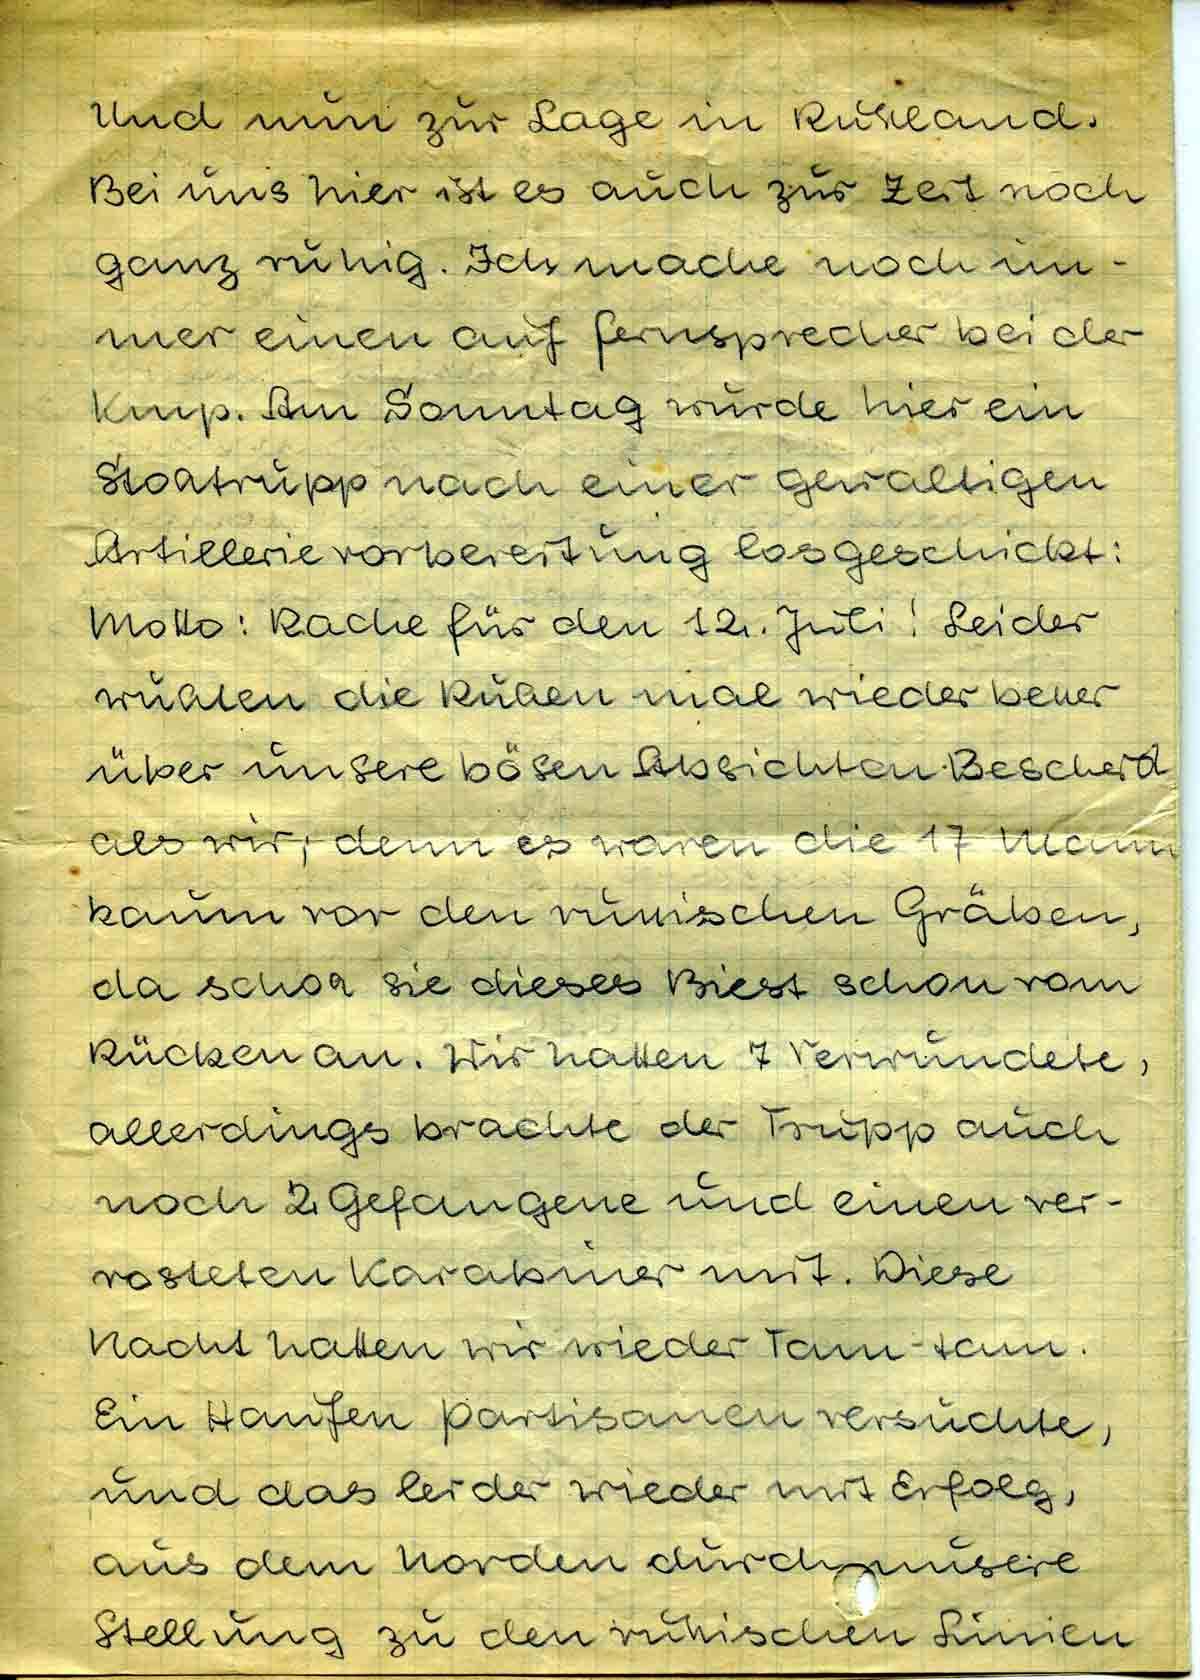 Und nun zur Lage in Rußland.
Bei uns hier ist es auch zur Zeit noch
ganz ruhig. Ich mache noch im-
mer einen auf Fernsprecher bei der
Kmp. Am Sonntag wurde hier ein
Stoßtrupp nach einer gewaltigen
Artillerievorbereitung losgeschickt:
Motto: Rache für den 12. Juli! Leider
wußten die Russen mal wieder besser
über unsere bösen Absichten Bescheid
als wir, denn es waren die 17 Mann
kaum vor den russischen Gräben,
da schoß sie dieses Biest schon vom
Rücken an. Wir hatten 7 Verwundete,
allerdings brachte der Trupp auch
noch 2 Gefangene und einen ver-
rosteten Karabiner mit. Diese
Nacht hatten wir wieder Tam-tam.
Ein Haufen Partisanen versuchte,
und das leider wieder mit Erfolg,
aus dem Norden durch unsere
Stellung zu den russischen Linien